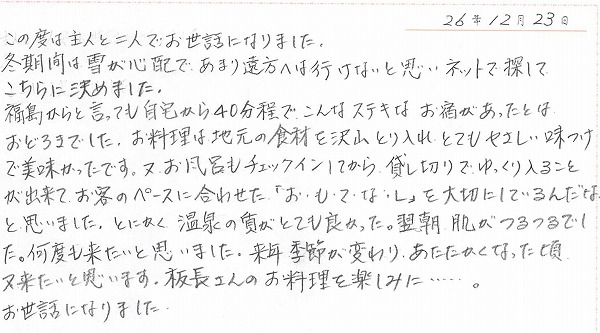 26年12月23日
この度は主人と二人でお世話になりました。
冬期間は雪が心配で、あまり遠方へは行けないと思いネットで探して
こちらに決めました。
福島からと言っても自宅から40分程で、こんなステキなお宿があったとは
おどろきでした。お料理は地元の食材を沢山とり入れ、とてもやさしい味つけ
で美味かったです。又、お風呂もチェックインしてから、貸し切りでゆっくり入ること
が出来て、お客のペースに合わせた「お・も・て・な・し」を大切にしているんだな
と思いました。とにかく温泉の質がとても良かった。翌朝、肌がつるつるでし
た。何度も来たいと思いました。来年季節が変わり、あたたかくなった頃
又来たいと思います。板長さんのお料理を楽しみに……。
お世話になりました。